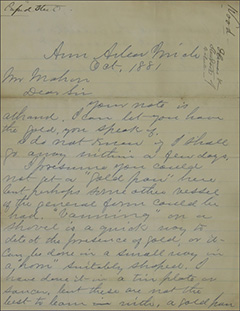 Ann Arbor Mich.
Oct. 1881
Mr Mahon
Dear Sir
Your note is
at hand. I can let you have
the gold, you speak of.
I do not know if I shall
go away within a few days.
I presume you could
not get a "Gold pan" here
but perhaps some other vessel
of the general form could be
had. "Vanning" on a
shovel is a quick way to
detect the presence of gold, or it
can be done in a small way in
a horn suitably shaped. I
have done it in a tin plate or
saucer, but these are not the
best to learn with, a gold pan